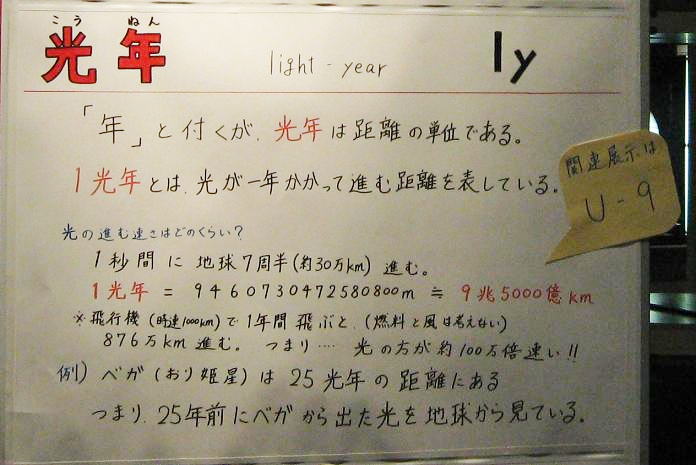 こう ねん
光年 light-year ly
「年」と付くが、光年は距離の単位である。
1光年とは、光が一年かかって進む距離を表している。
関連展示は
U-9
光の進む速さはどのくらい?
1秒間に地球7周半(約30万km)進む。
1光年 = 9460730472580800m ≒ 9兆5000億km
※飛行機(時速1000km)で1年間飛ぶと、(燃料と風は考えない)
876万km進む。 つまり…… 光の方が約100万倍速い!!
例)ベガ(おり姫星)は25光年の距離にある
つまり、25年前にベガから出た光を地球から見ている。